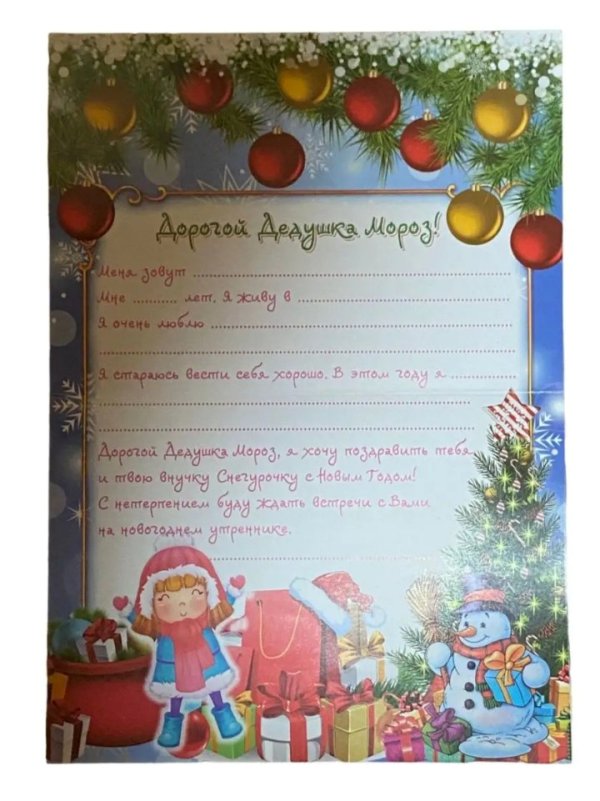 Дорогой Дедушка Мороз!
Меня зовут ..........................................................
Мне .......... лет. Я живу в ........................................
Я очень люблю .......................................................
.....................................................................
Я стараюсь вести себя хорошо. В этом году я ..............
.....................................................................
.....................................................................
Дорогой Дедушка Мороз, я хочу поздравить тебя
и твою внучку Снегурочку с Новым Годом!
С нетерпением буду ждать встречи с Вами
на новогоднем утреннике.
.....................................................................